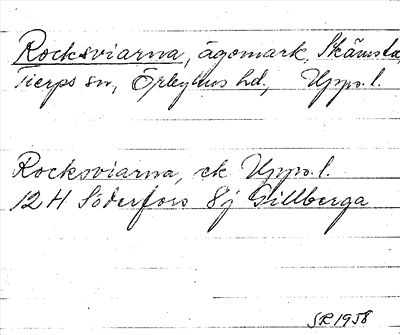 Rocksviarna, ägomark, Skämsta,
Tierps sn, Örbyhus hd, Upps. l.
Rocksviarna, ek Upps. l.
12 H Söderfors 8j Gillberga
SR 1958